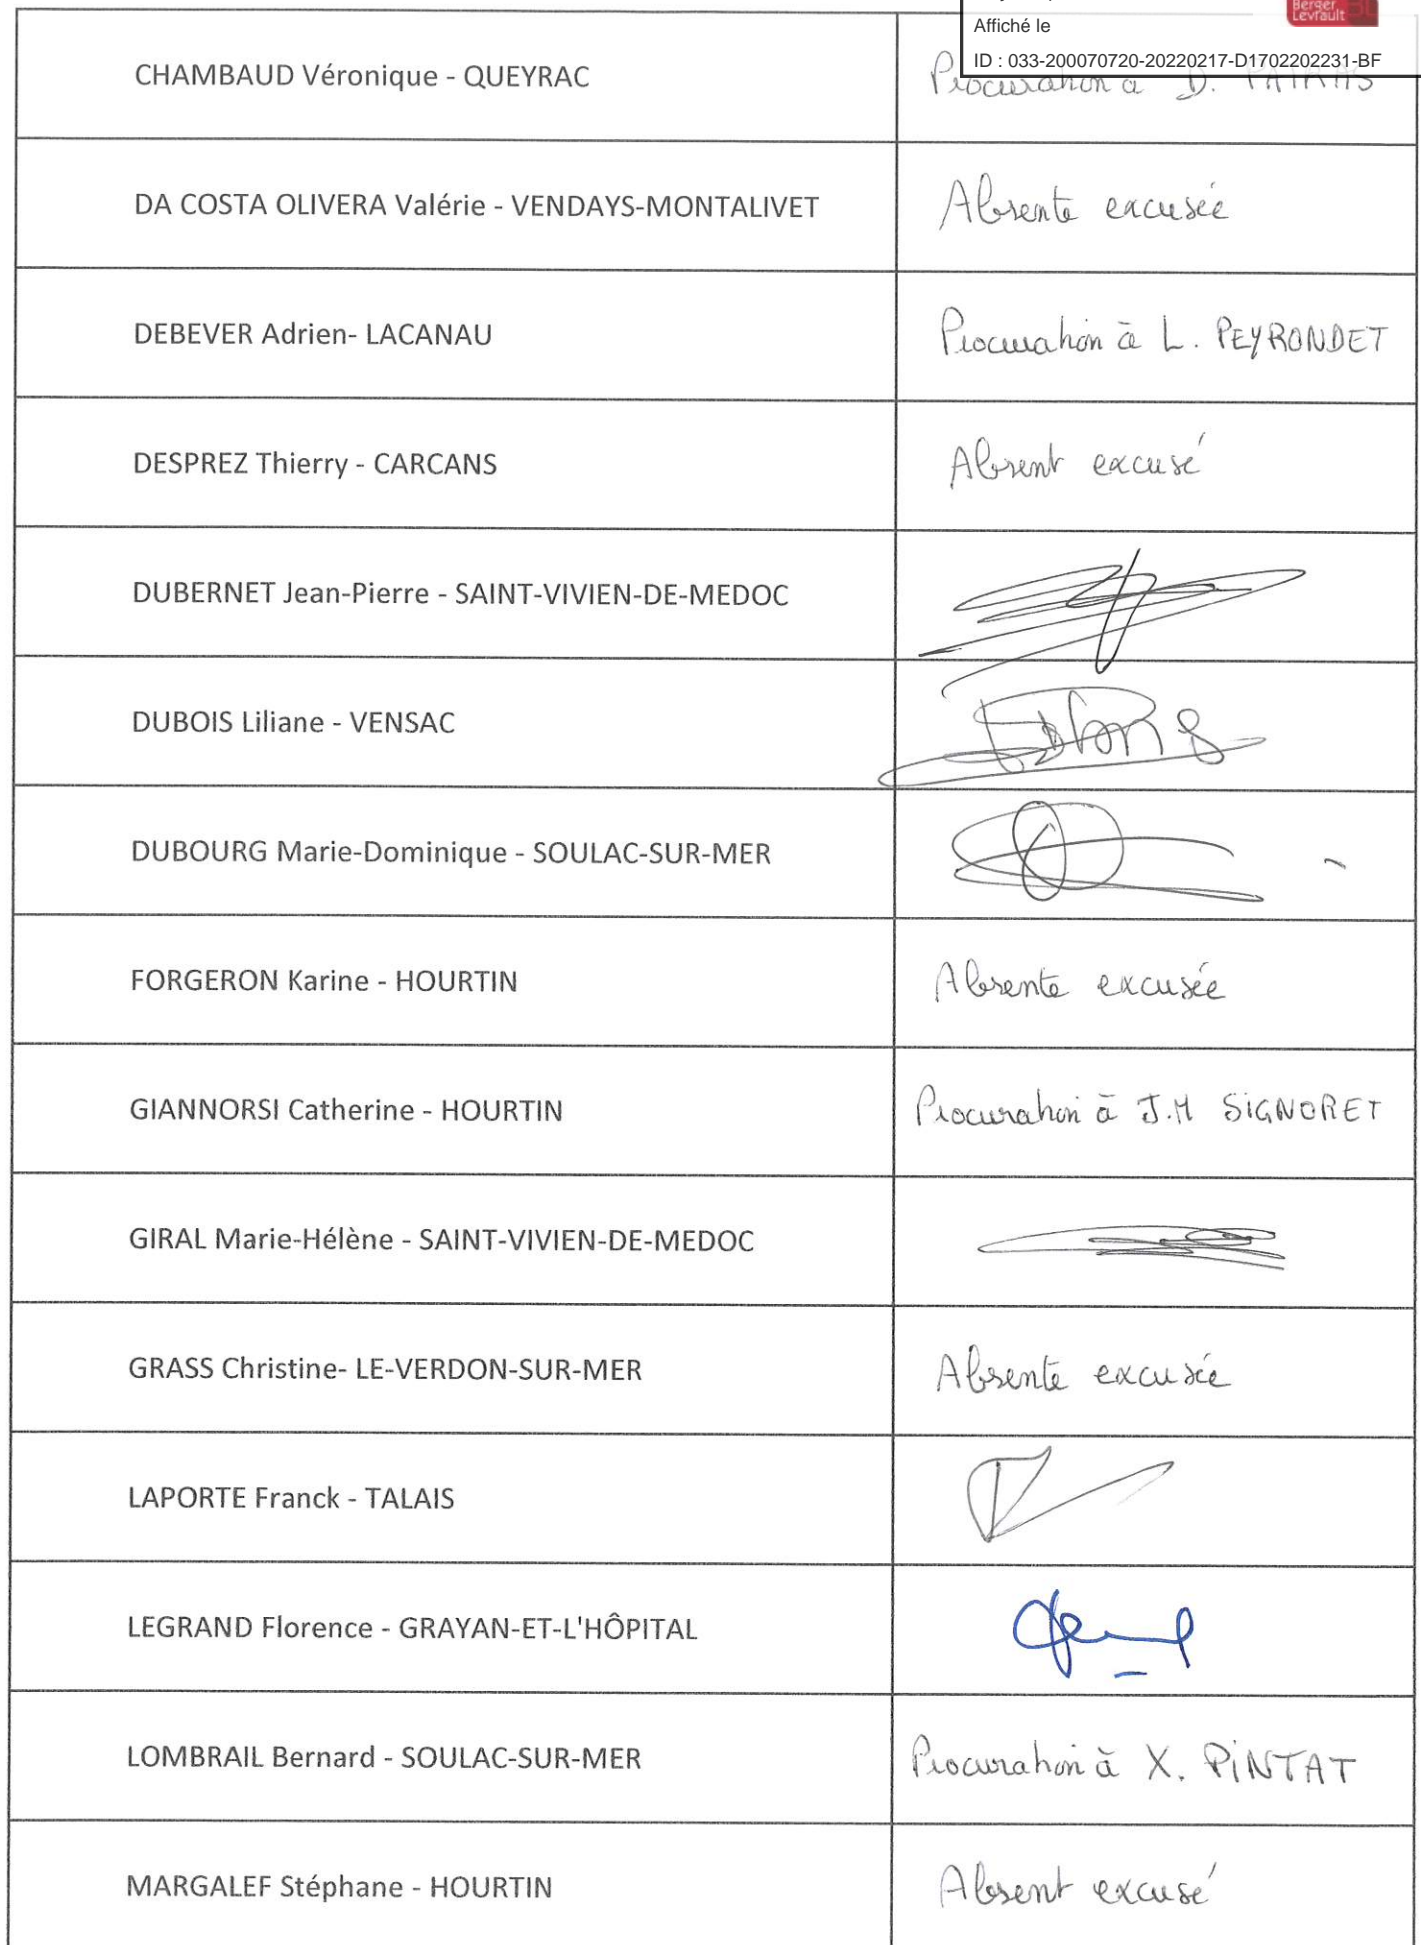 Berger
Levrault
Affiché le
ID : 033-200070720-20220217-D1702202231-BF
CHAMBAUD Véronique - QUEYRAC
Procuration à D.
DA COSTA OLIVERA Valérie - VENDAYS-MONTALIVET
Absente excusée
DEBEVER Adrien- LACANAU
Procuration à L. PEYRONDET
DESPREZ Thierry - CARCANS
Absent excusé
DUBERNET Jean-Pierre - SAINT-VIVIEN-DE-MEDOC
DUBOIS Liliane - VENSAC
DUBOURG Marie-Dominique - SOULAC-SUR-MER
FORGERON Karine - HOURTIN
Absente excusée
GIANNORSI Catherine - HOURTIN
Procuration à J.M SIGNORET
GIRAL Marie-Hélène - SAINT-VIVIEN-DE-MEDOC
GRASS Christine- LE-VERDON-SUR-MER
Absente excusée
LAPORTE Franck - TALAIS
LEGRAND Florence - GRAYAN-ET-L'HÔPITAL
LOMBRAIL Bernard - SOULAC-SUR-MER
Procuration à X. PINTAT
MARGALEF Stéphane - HOURTIN
Absent excusé